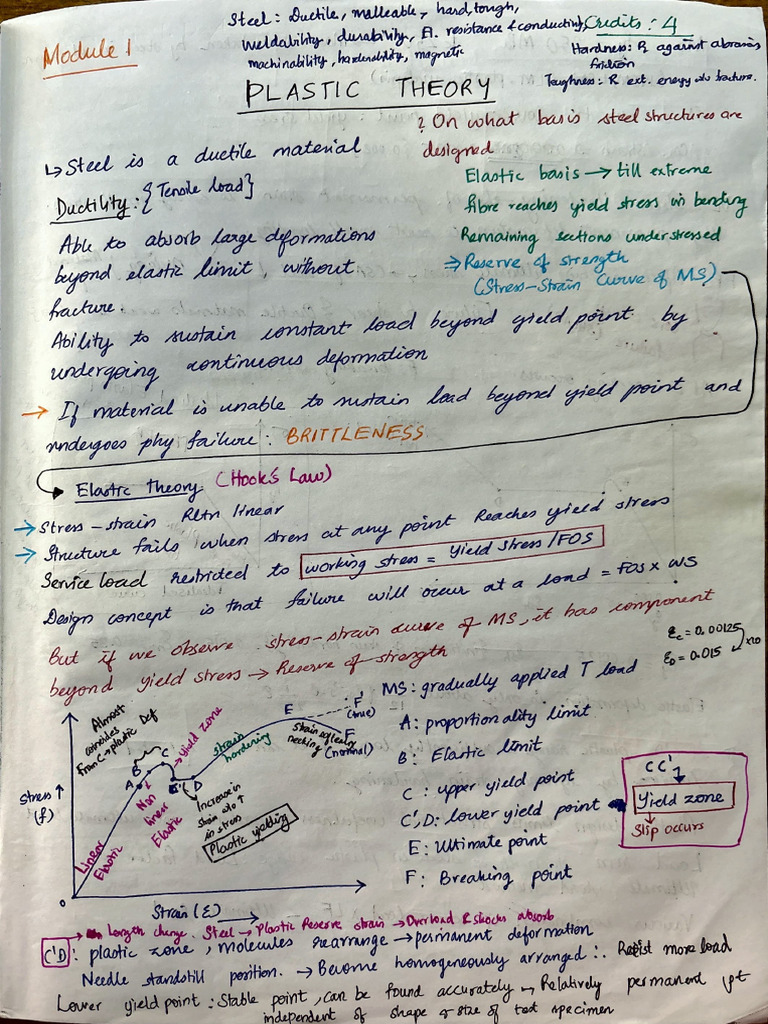 Module 1
Steel: Ductile, malleable, hard, tough,
weldability, durability, El. resistance & conducting,
machinability, hardenability, magnetic
Credits: 4
Hardness: R against abrasion
friction
Toughness: R ext. energy w/o fracture.
PLASTIC THEORY
↳ Steel is a ductile material
Ductility: {Tensile load}
Able to absorb large deformations
beyond elastic limit, without
fracture.
? On what basis steel structures are
designed
Elastic basis → till extreme
fibre reaches yield stress in bending
Remaining sections understressed
⇒ Reserve of strength
(Stress-Strain Curve of MS)
Ability to sustain constant load beyond yield point by
undergoing continuous deformation
→ If material is unable to sustain load beyond yield point and
undergoes phy failure: BRITTLENESS
Elastic Theory (Hooke's Law)
→ Stress-strain Reltn linear
→ Structure fails when stress at any point Reaches yield stress
Service load restricted to working stress = Yield Stress/FOS
Design concept is that failure will occur at a load = FOS x WS
But if we observe stress-strain curve of MS, it has component
beyond yield stress → Reserve of strength
εc = 0.00125
εD = 0.015
x10
Almost
coincides
From C → plastic Def
→ Yield zone
Strain hardening
E
F'
(true)
F
(nominal)
Strain softening
necking
B
C
A
C'
D
Non
linear
Elastic
Increase in
strain w/o ↑
in stress
Plastic yielding
Linear
Elastic
Stress ↑
(f)
0
Strain (ε) →
MS: gradually applied T load
A: proportionality limit
B: Elastic limit
C: upper yield point
C', D: lower yield point
E: Ultimate point
F: Breaking point
CC'
Yield zone
Slip occurs
Length change. Steel → Plastic Reserve strain → Overload & shocks absorb
C'D: plastic zone, molecules rearrange → permanent deformation
Needle standstill position. → Become homogeneously arranged ∴ Resist more load
Lower yield point: Stable point, can be found accurately → Relatively permanent pt
independent of shape & size of test specimen